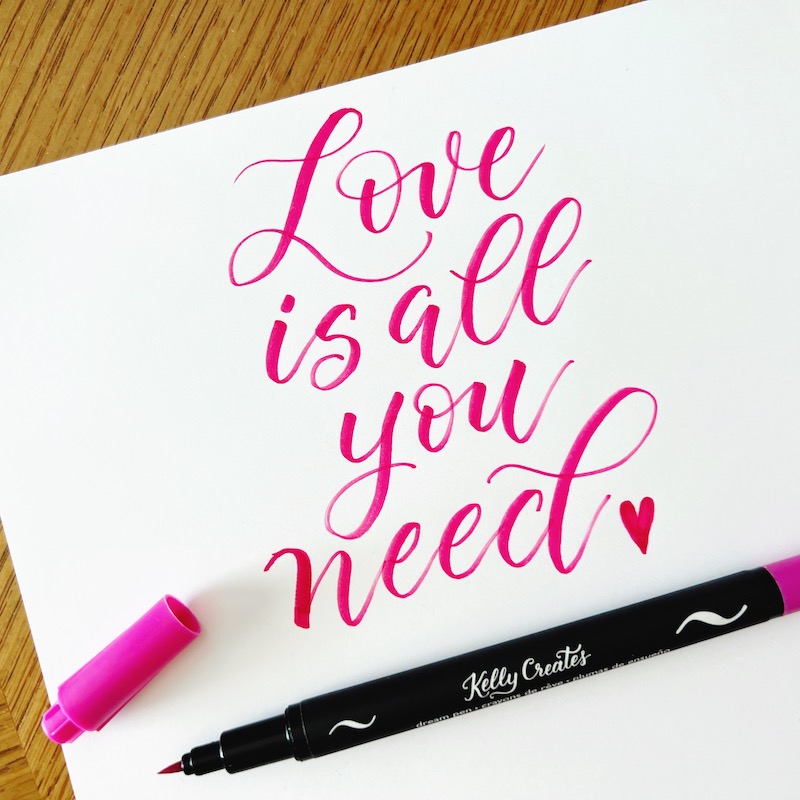 Love
is all
you
need
Kelly Creates
dream pen • crayons de rêve • plumas de ensueño